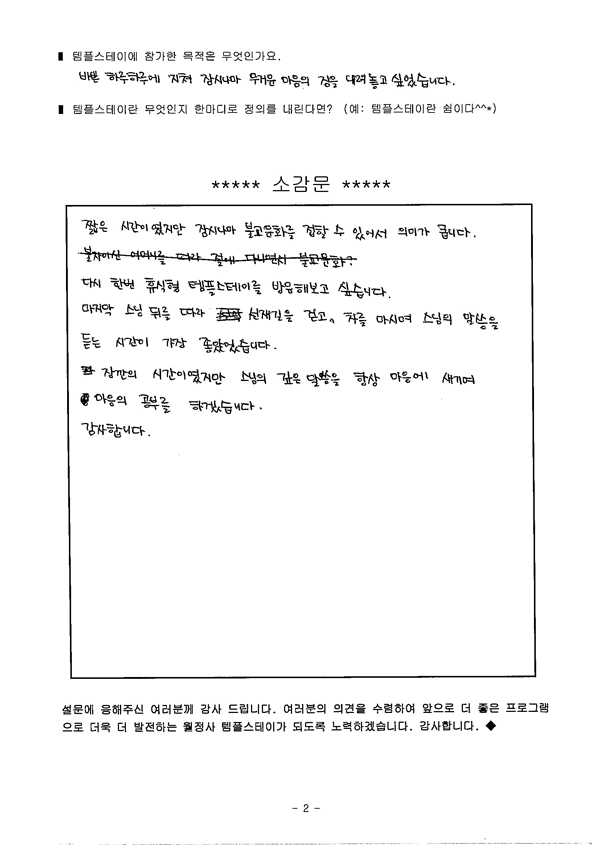 ▮ 템플스테이에 참가한 목적은 무엇인가요.
바쁜 하루하루에 지쳐 잠시나마 무거운 마음의 짐을 내려놓고 싶었습니다.
▮ 템플스테이란 무엇인지 한마디로 정의를 내린다면? (예: 템플스테이란 쉼이다^^*)
***** 소감문 *****
짧은 시간이였지만 잠시나마 불교문화를 접할 수 있어서 의미가 큽니다.
불자이신 어머니를 따라 절에 다니면서 불교문화?
다시 한번 휴식형 템플스테이를 방문해보고 싶습니다.
마지막 스님 뒤를 따라 선재길을 걷고, 차를 마시며 스님의 말씀을
듣는 시간이 가장 좋았었습니다.
잠깐의 시간이였지만 스님의 깊은 말씀을 항상 마음에 새기며
마음의 공부를 하겠습니다.
감사합니다.
설문에 응해주신 여러분께 감사 드립니다. 여러분의 의견을 수렴하여 앞으로 더 좋은 프로그램
으로 더욱 더 발전하는 월정사 템플스테이가 되도록 노력하겠습니다. 감사합니다. ◆
- 2 -